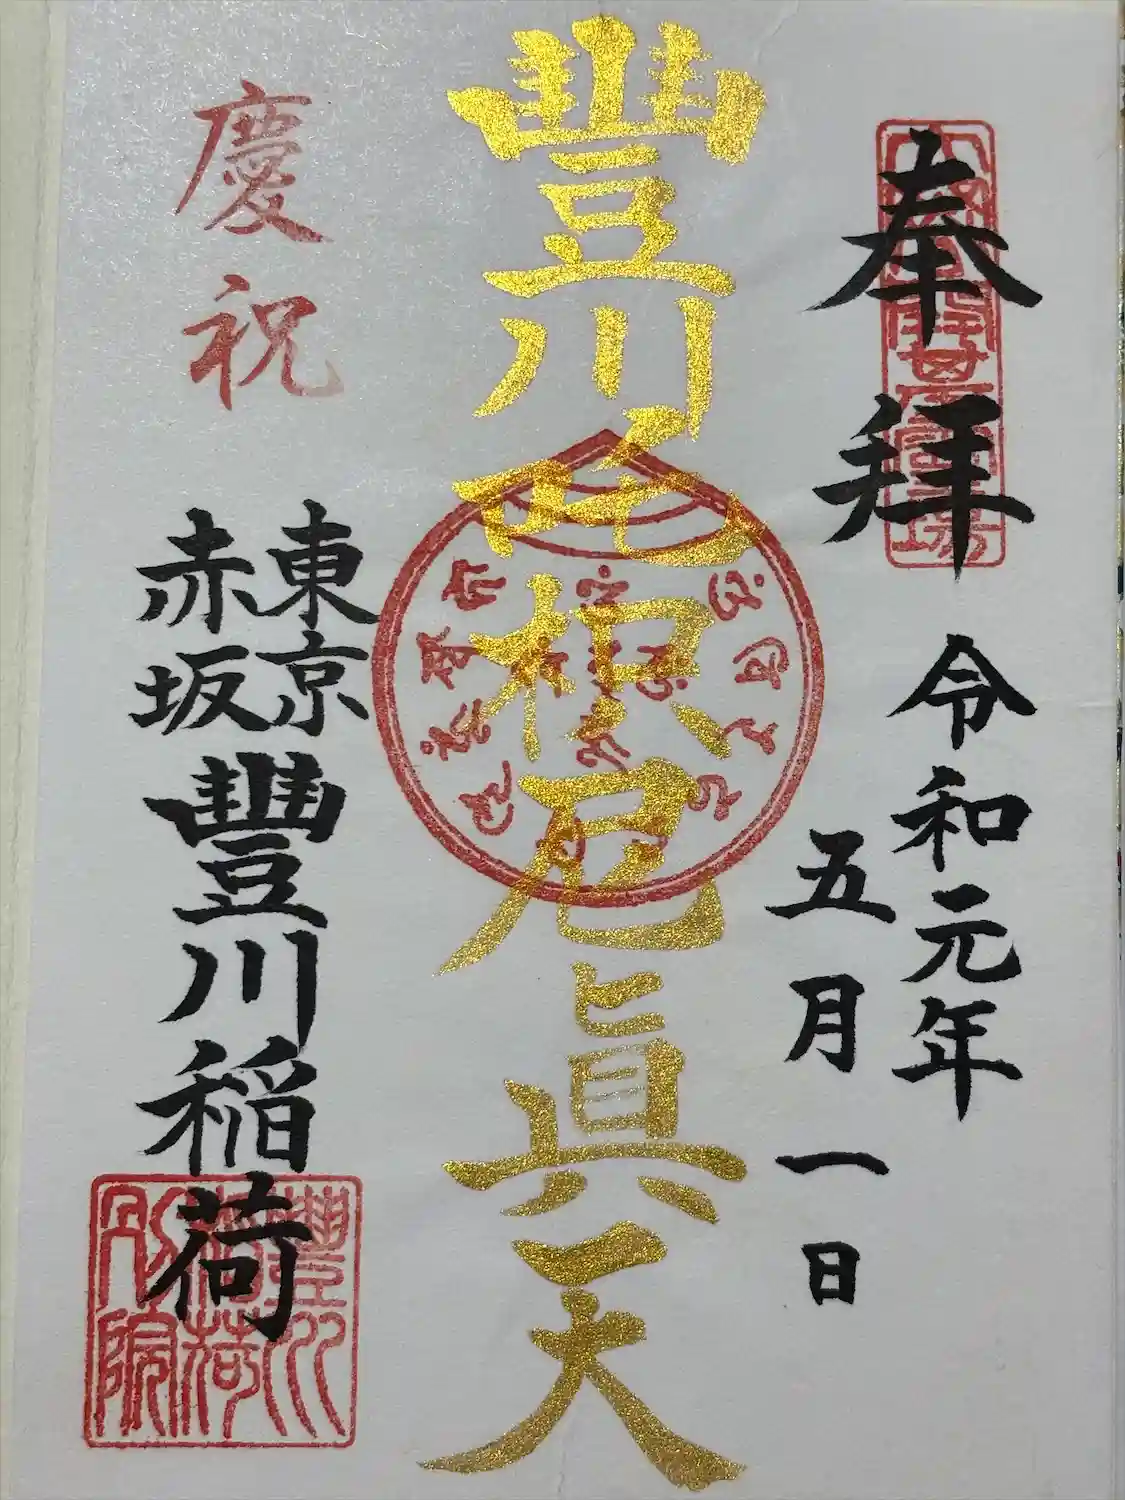 奉拝
令和元年
五月一日
豐川吒枳尼眞天
慶祝
東京
赤坂
豐川稲荷
豐川
稲荷
別院